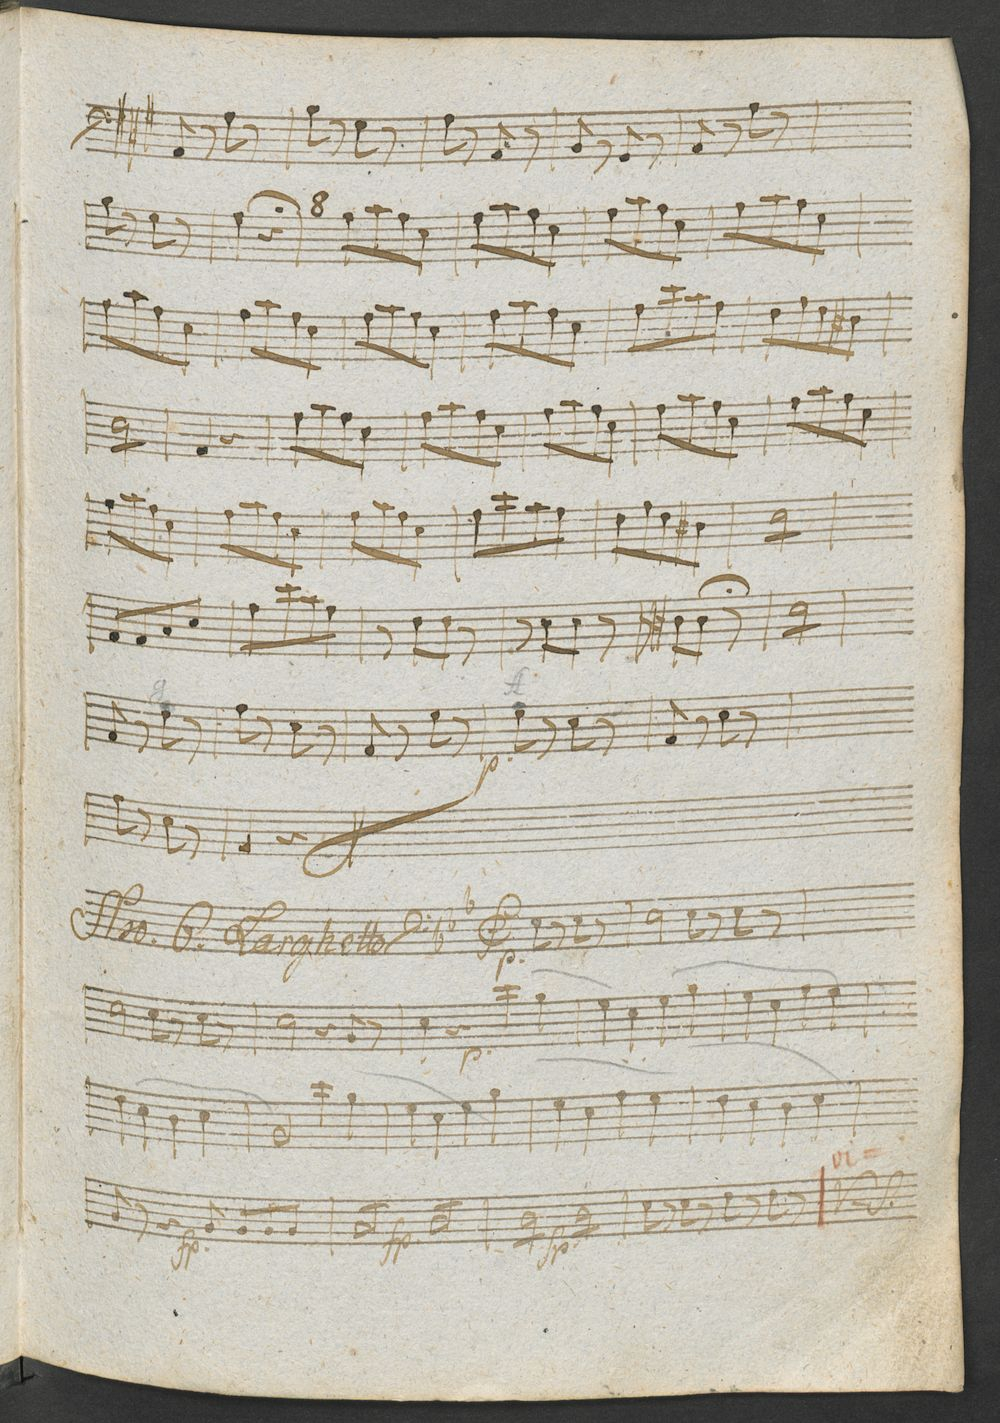 8
g A
p.
Nro. 6. Larghetto
p.
p.
vi=
fp. fp fp. V. S.